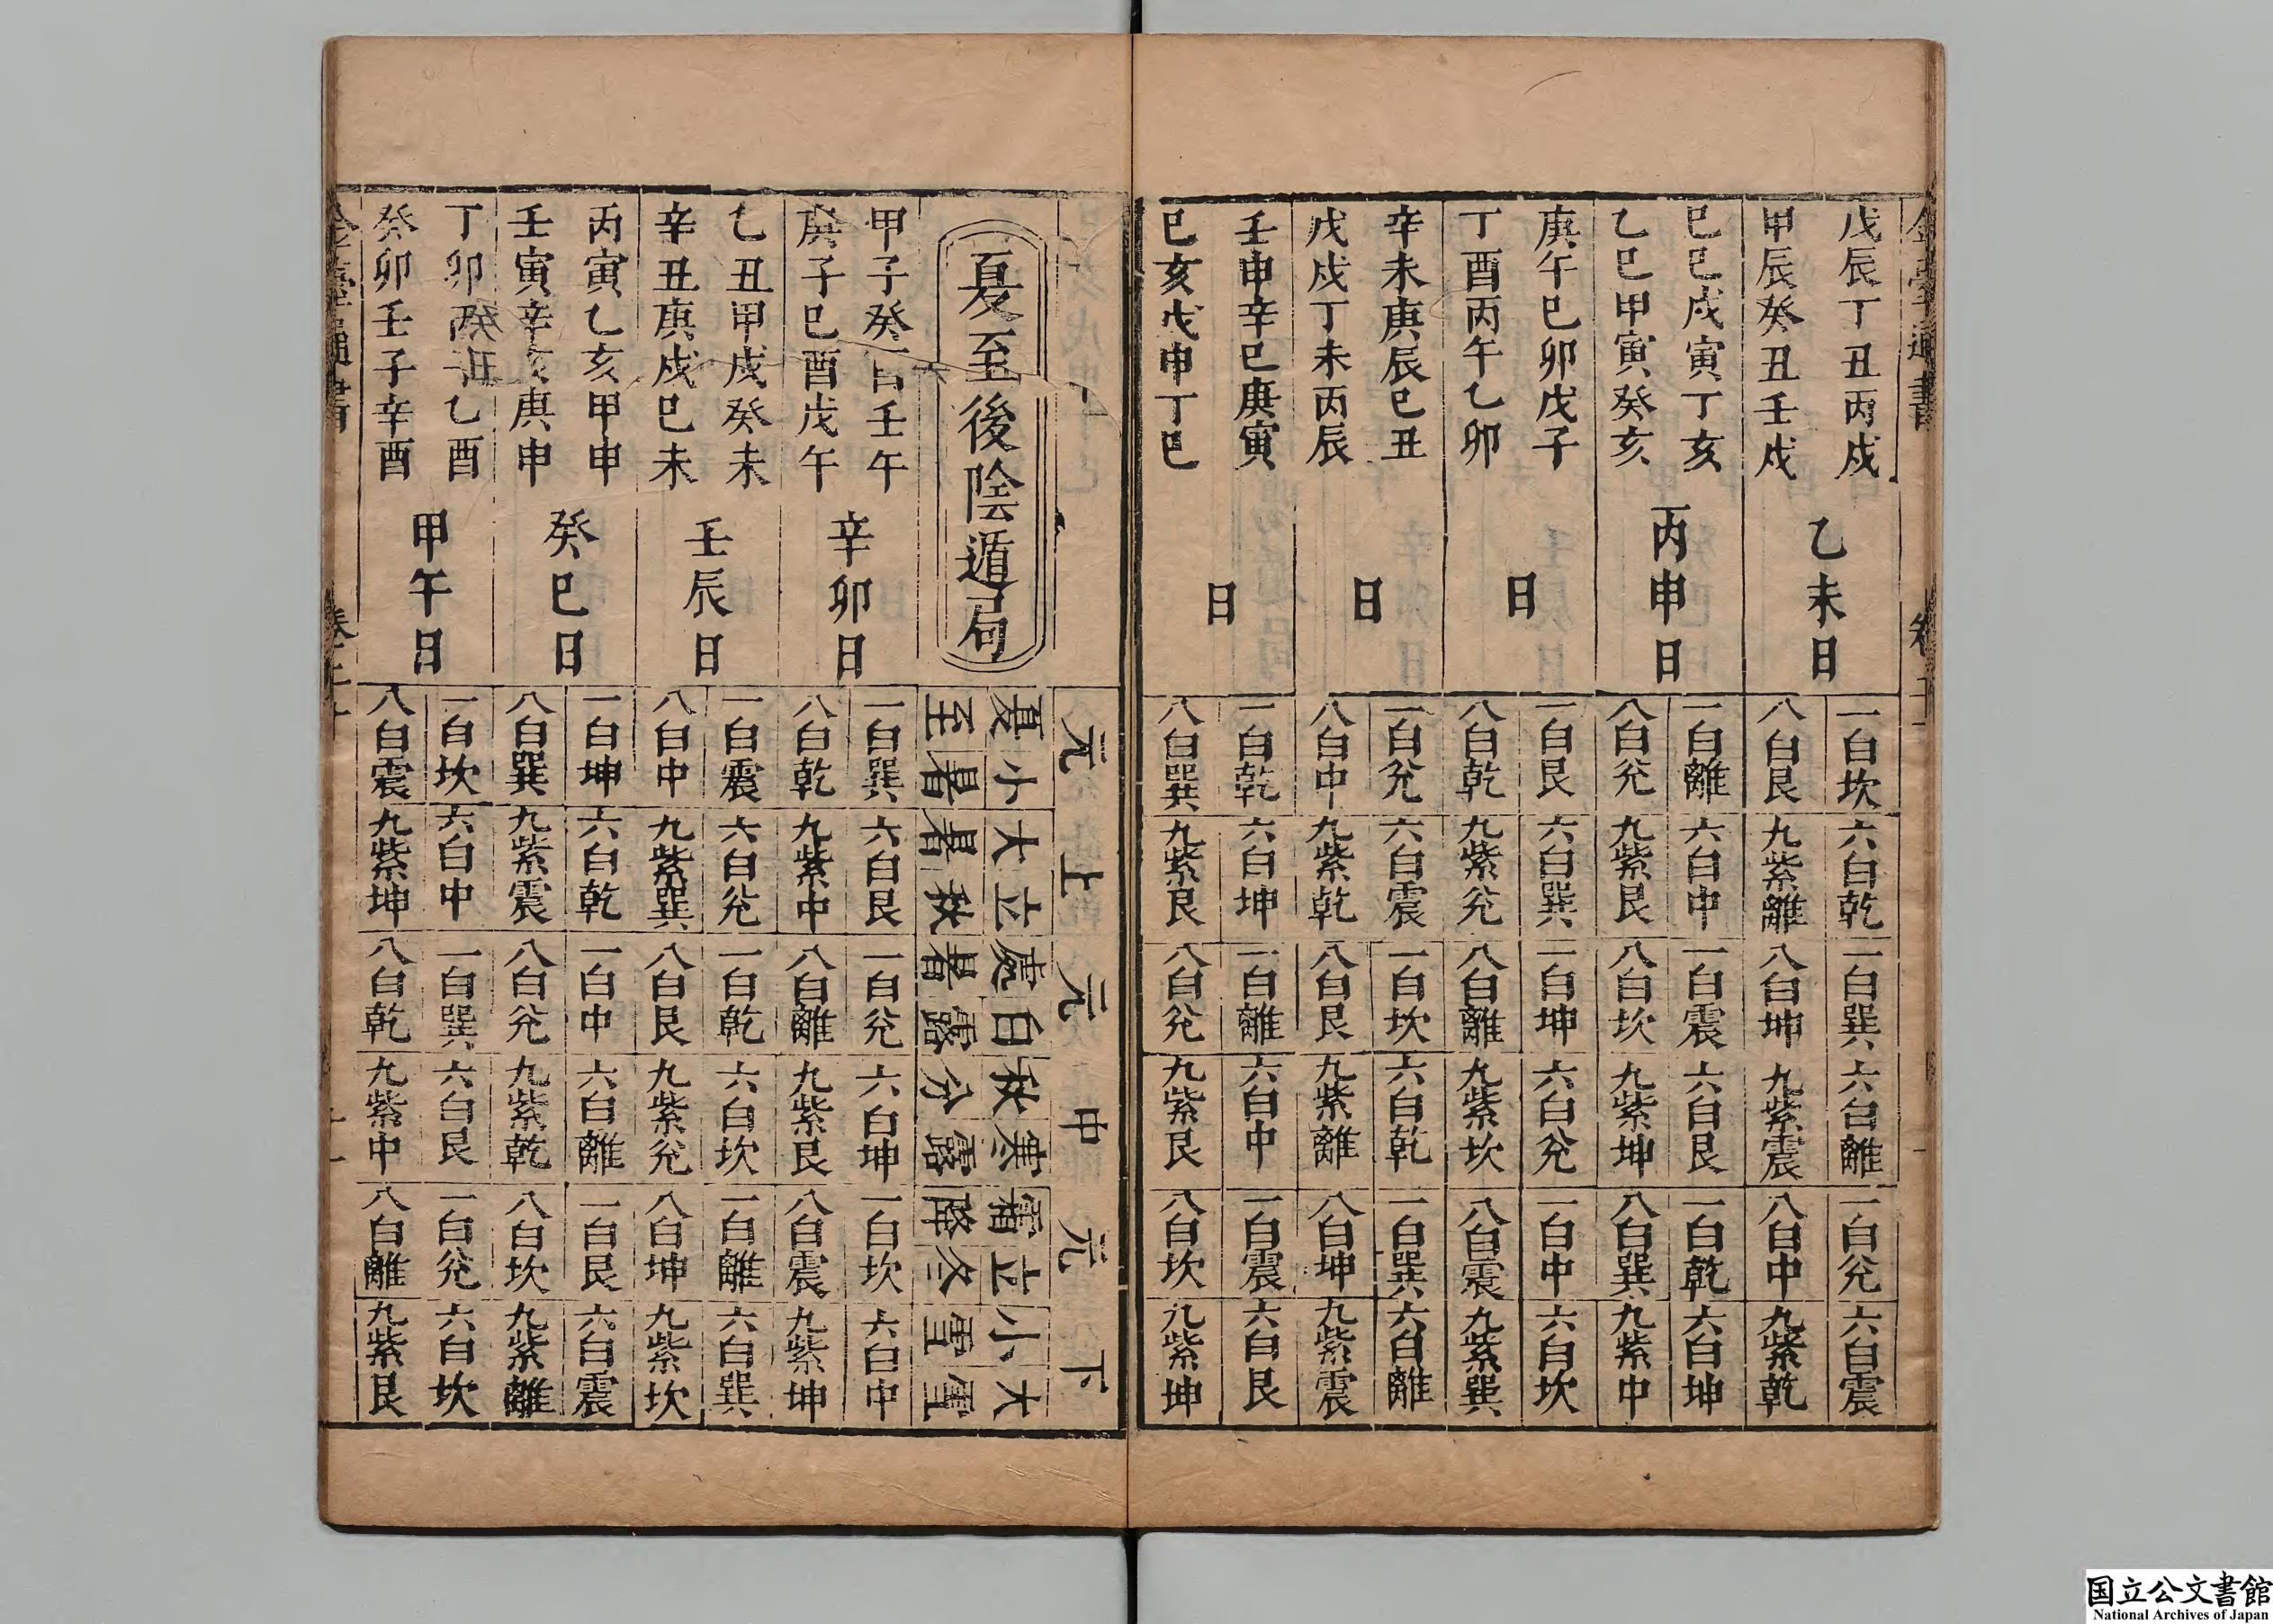 戊辰丁丑丙戌
甲辰癸丑壬戌
乙未日
一白坎六白乾一白巽六白離一白兊六白震
八白艮九紫離八白坤九紫震八白中九紫乾
己巳戊寅丁亥
乙巳甲寅癸亥
丙申日
一白離六白中一白震六白艮一白乾六白坤
八白兊九紫艮八白坎九紫坤八白巽九紫中
庚午己卯戊子
丁酉丙午乙卯
日
一白艮六白巽一白坤六白兊一白中六白坎
八白乾九紫兊八白離九紫坎八白震九紫巽
辛未庚辰己丑
戊戌丁未丙辰
日
一白兊六白震一白坎六白乾一白巽六白離
八白中九紫乾八白艮九紫離八白坤九紫震
壬申辛巳庚寅
己亥戊申丁巳
日
一白乾六白坤一白離六白中一白震六白艮
八白巽九紫艮八白兊九紫艮八白坎九紫坤
元上元中元下
夏至後陰遁局
夏至 小暑 大暑 立秋 處暑 白露 秋分 寒露 霜降 立冬 小雪 大雪
甲子癸酉壬午
庚子己酉戊午
辛卯日
一白巽六白艮一白兊六白坤一白坎六白中
八白乾九紫中八白離九紫艮八白震九紫坤
乙丑甲戌癸未
辛丑庚戌己未
壬辰日
一白震六白兊一白乾六白坎一白離六白巽
八白中九紫巽八白艮九紫兊八白坤九紫坎
丙寅乙亥甲申
壬寅辛亥庚申
癸巳日
一白坤六白乾一白中六白離一白艮六白震
八白巽九紫震八白兊九紫乾八白坎九紫離
丁卯 乙酉
癸卯壬子辛酉
甲午日
一白坎六白中一白巽六白艮一白兊六白坎
八白震九紫坤八白乾九紫中八白離九紫艮
国立公文書館
National Archives of Japan